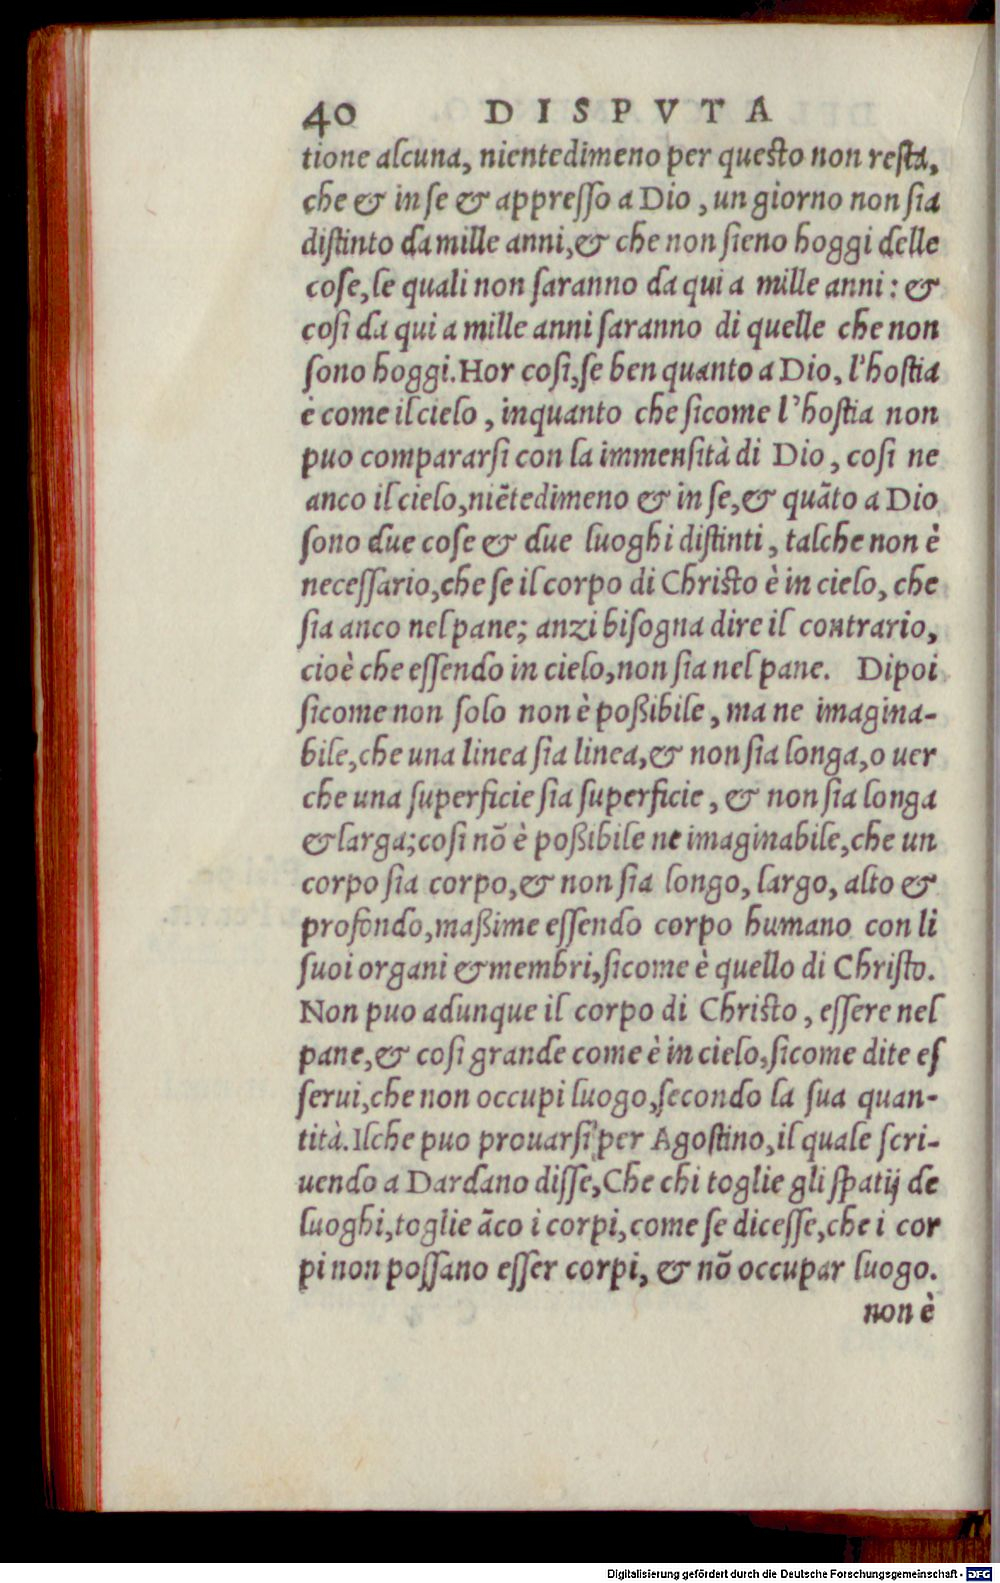 40 DISPVTA
tione alcuna, nientedimeno per questo non resta,
che & in se & appresso a Dio, un giorno non sia
distinto da mille anni, & che non sieno hoggi delle
cose, le quali non saranno da qui a mille anni: &
cosi da qui a mille anni saranno di quelle che non
sono hoggi. Hor cosi, se ben quanto a Dio, l'hostia
è come il cielo, inquanto che sicome l'hostia non
puo compararsi con la immensità di Dio, cosi ne
anco il cielo, niētedimeno & in se, & quāto a Dio
sono due cose & due luoghi distinti, talche non è
necessario, che se il corpo di Christo è in cielo, che
sia anco nel pane; anzi bisogna dire il contrario,
cioè che essendo in cielo, non sia nel pane. Dipoi
sicome non solo non è poßibile, ma ne imagina-
bile, che una linea sia linea, & non sia longa, o uer
che una superficie sia superficie, & non sia longa
& larga; cosi nō è poßibile ne imaginabile, che un
corpo sia corpo, & non sia longo, largo, alto &
profondo, maßime essendo corpo humano con li
suoi organi & membri, sicome è quello di Christo.
Non puo adunque il corpo di Christo, essere nel
pane, & cosi grande come è in cielo, sicome dite es
serui, che non occupi luogo, secondo la sua quan-
tità. Ilche puo prouarsi per Agostino, il quale scri-
uendo a Dardano disse, Che chi toglie gli spatij de
luoghi, toglie āco i corpi, come se dicesse, che i cor
pi non possano esser corpi, & nō occupar luogo.
non è
Digitalisierung gefördert durch die Deutsche Forschungsgemeinschaft - DFG